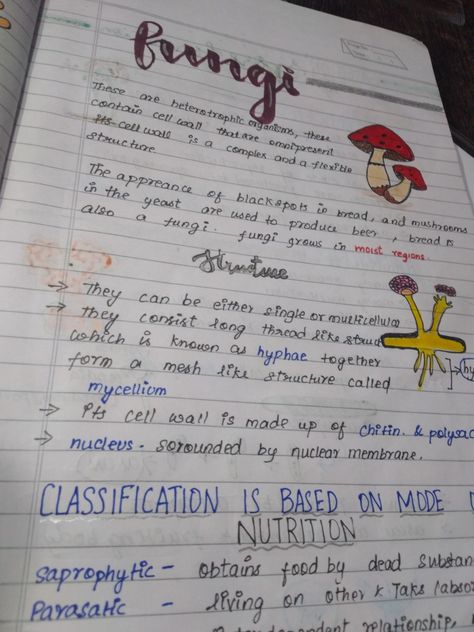 fungi
These are heterotrophic organisms, these
contain cell wall that are omnipresent
Its cell wall is a complex and a flexible
structure
The apprearance of blackspots in bread, and mushrooms
in the yeast are used to produce beer, bread is
also a fungi. fungi grows in moist regions.
Structure
→ They can be either single or multicellular
→ They consist long thread like struc
which is known as hyphae together
form a mesh like structure called
mycellium
→ Its cell wall is made up of chitin. & polysac
→ nucleus - sorounded by nuclear membrane.
CLASSIFICATION IS BASED ON MODE
NUTRITION
saprophytic - obtains food by dead substan
Parasatic - living on other & Taks (abso
dependant relationship,